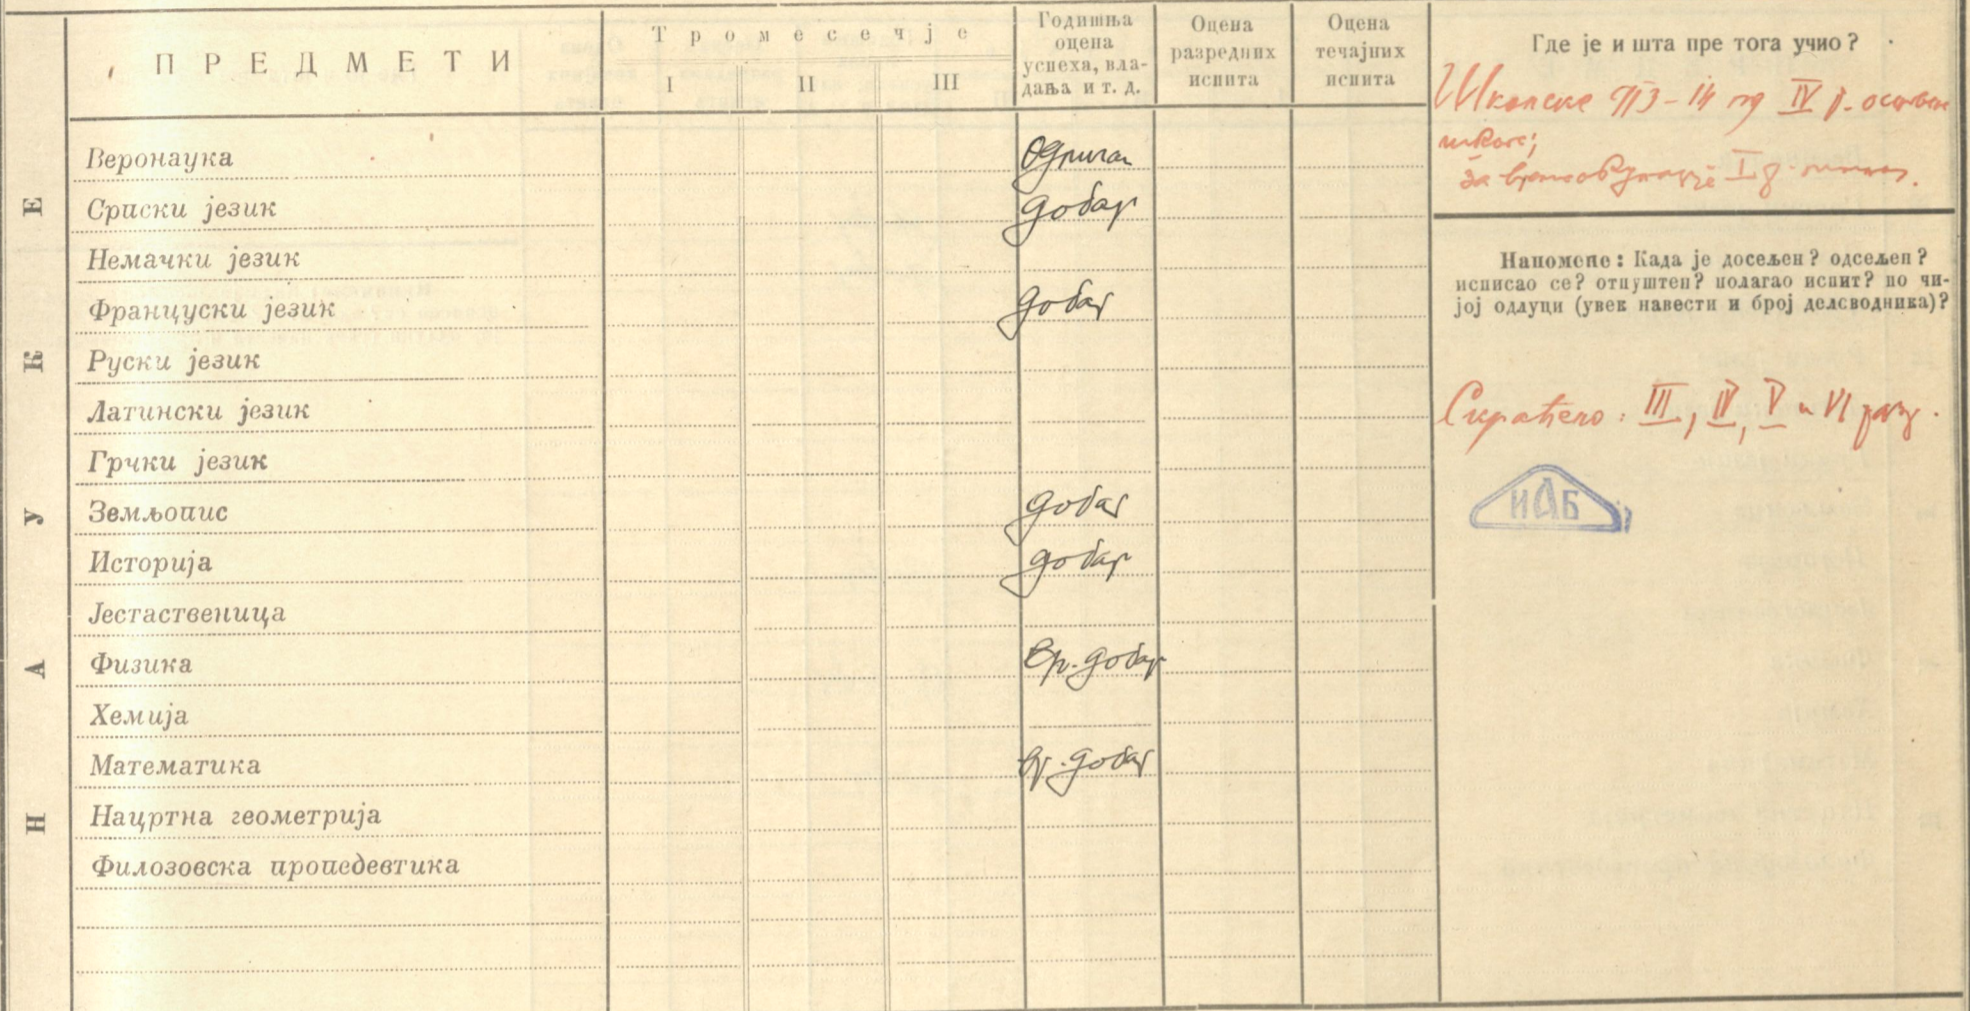 ПРЕДМЕТИ
Тромесечје
I II III
Годишња
оцена
успеха, вла-
дања и т. д.
Оцена
разредних
испита
Оцена
течајних
испита
НАУКЕ
Веронаука
Српски језик добар
Немачки језик
Француски језик добар
Руски језик
Латински језик
Грчки језик
Земљопис добар
Историја добар
Јестаственица
Физика вр. добар
Хемија
Математика вр. добар
Нацртна геометрија
Филозовска пропедевтика
Где је и шта пре тога учио?
Школске 913-14 год IV р. основне
школе;
за време I
Напомене: Када је досељен? одсељен?
исписао се? отпуштен? полагао испит? по чи-
јој одлуци (увек навести и број деловодника)?
Скраћено: III, IV, V и VI разр.
ИАБ